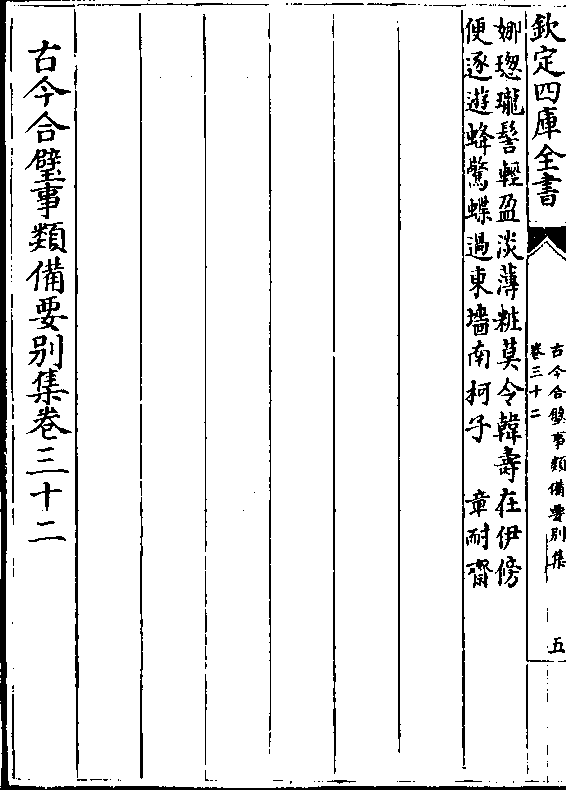 欽定四庫全書
古今合璧事類備要别集
卷三十二
五
娜璁瓏髻輕盈淡薄粧莫令韓壽在伊傍
便逐遊蜂驚蝶過東墻南柯子 章耐齋
古今合璧事類備要别集卷三十二